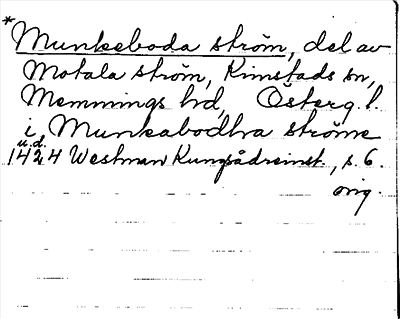 *Munkeboda ström, del av
Motala ström, Kimstads sn,
Memmings hd, Österg. l.
i, Munkabodhra ströme
u.d.
1424 Westman Kungsådreinst., s. 6.
orig.